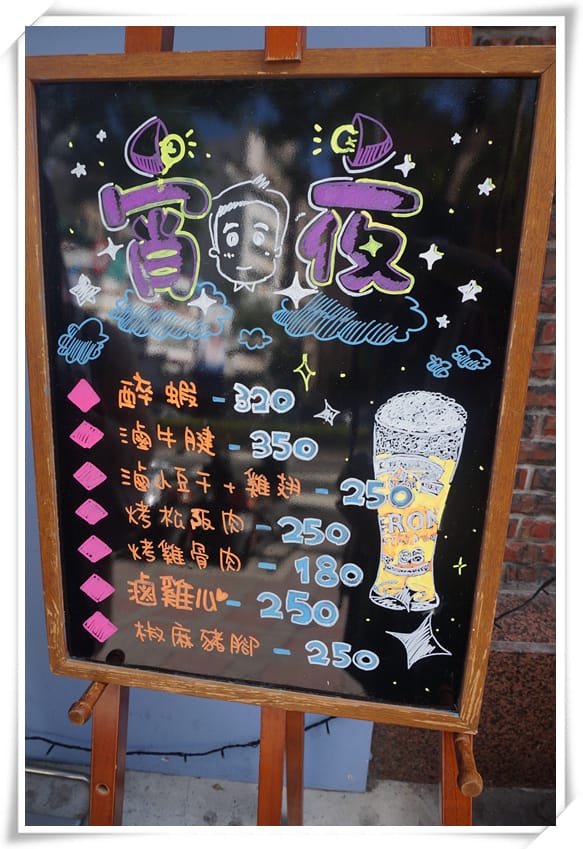 宵夜
醉蝦 - 320
滷牛腱 - 350
滷小豆干 + 雞翅 - 250
烤松阪肉 - 250
烤雞骨肉 - 180
滷雞心 - 250
椒麻豬腳 - 250